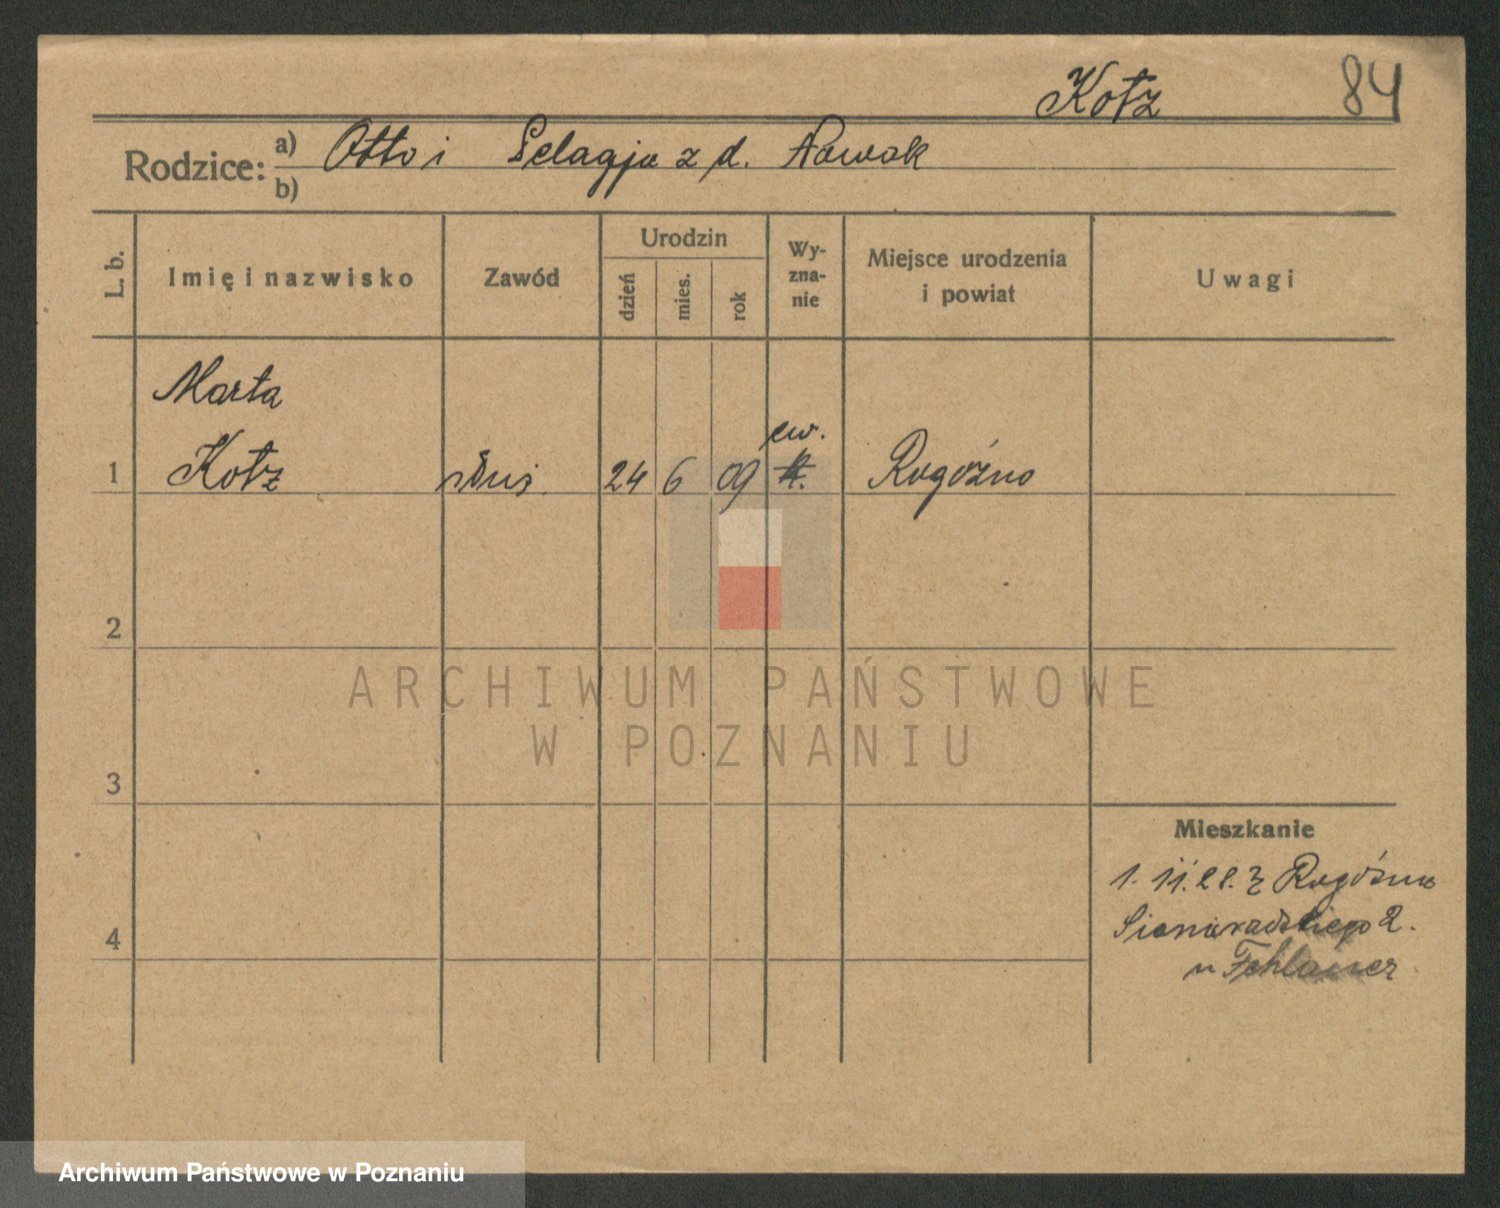 Kotz 84
Rodzice: a) Otto i Pelagja z d. Nowak
b)
L. b.
Imię i nazwisko
Zawód
Urodzin
dzień
mies.
rok
Wy-
zna-
nie
Miejsce urodzenia
i powiat
Uwagi
Marta
ew.
1 Kotz 24 6 09 Rogóźno
2
ARCHIWUM PAŃSTWOWE
W POZNANIU
3
Mieszkanie
1. 11. 28. z Rogóźna
4 2.
u
Archiwum Państwowe w Poznaniu